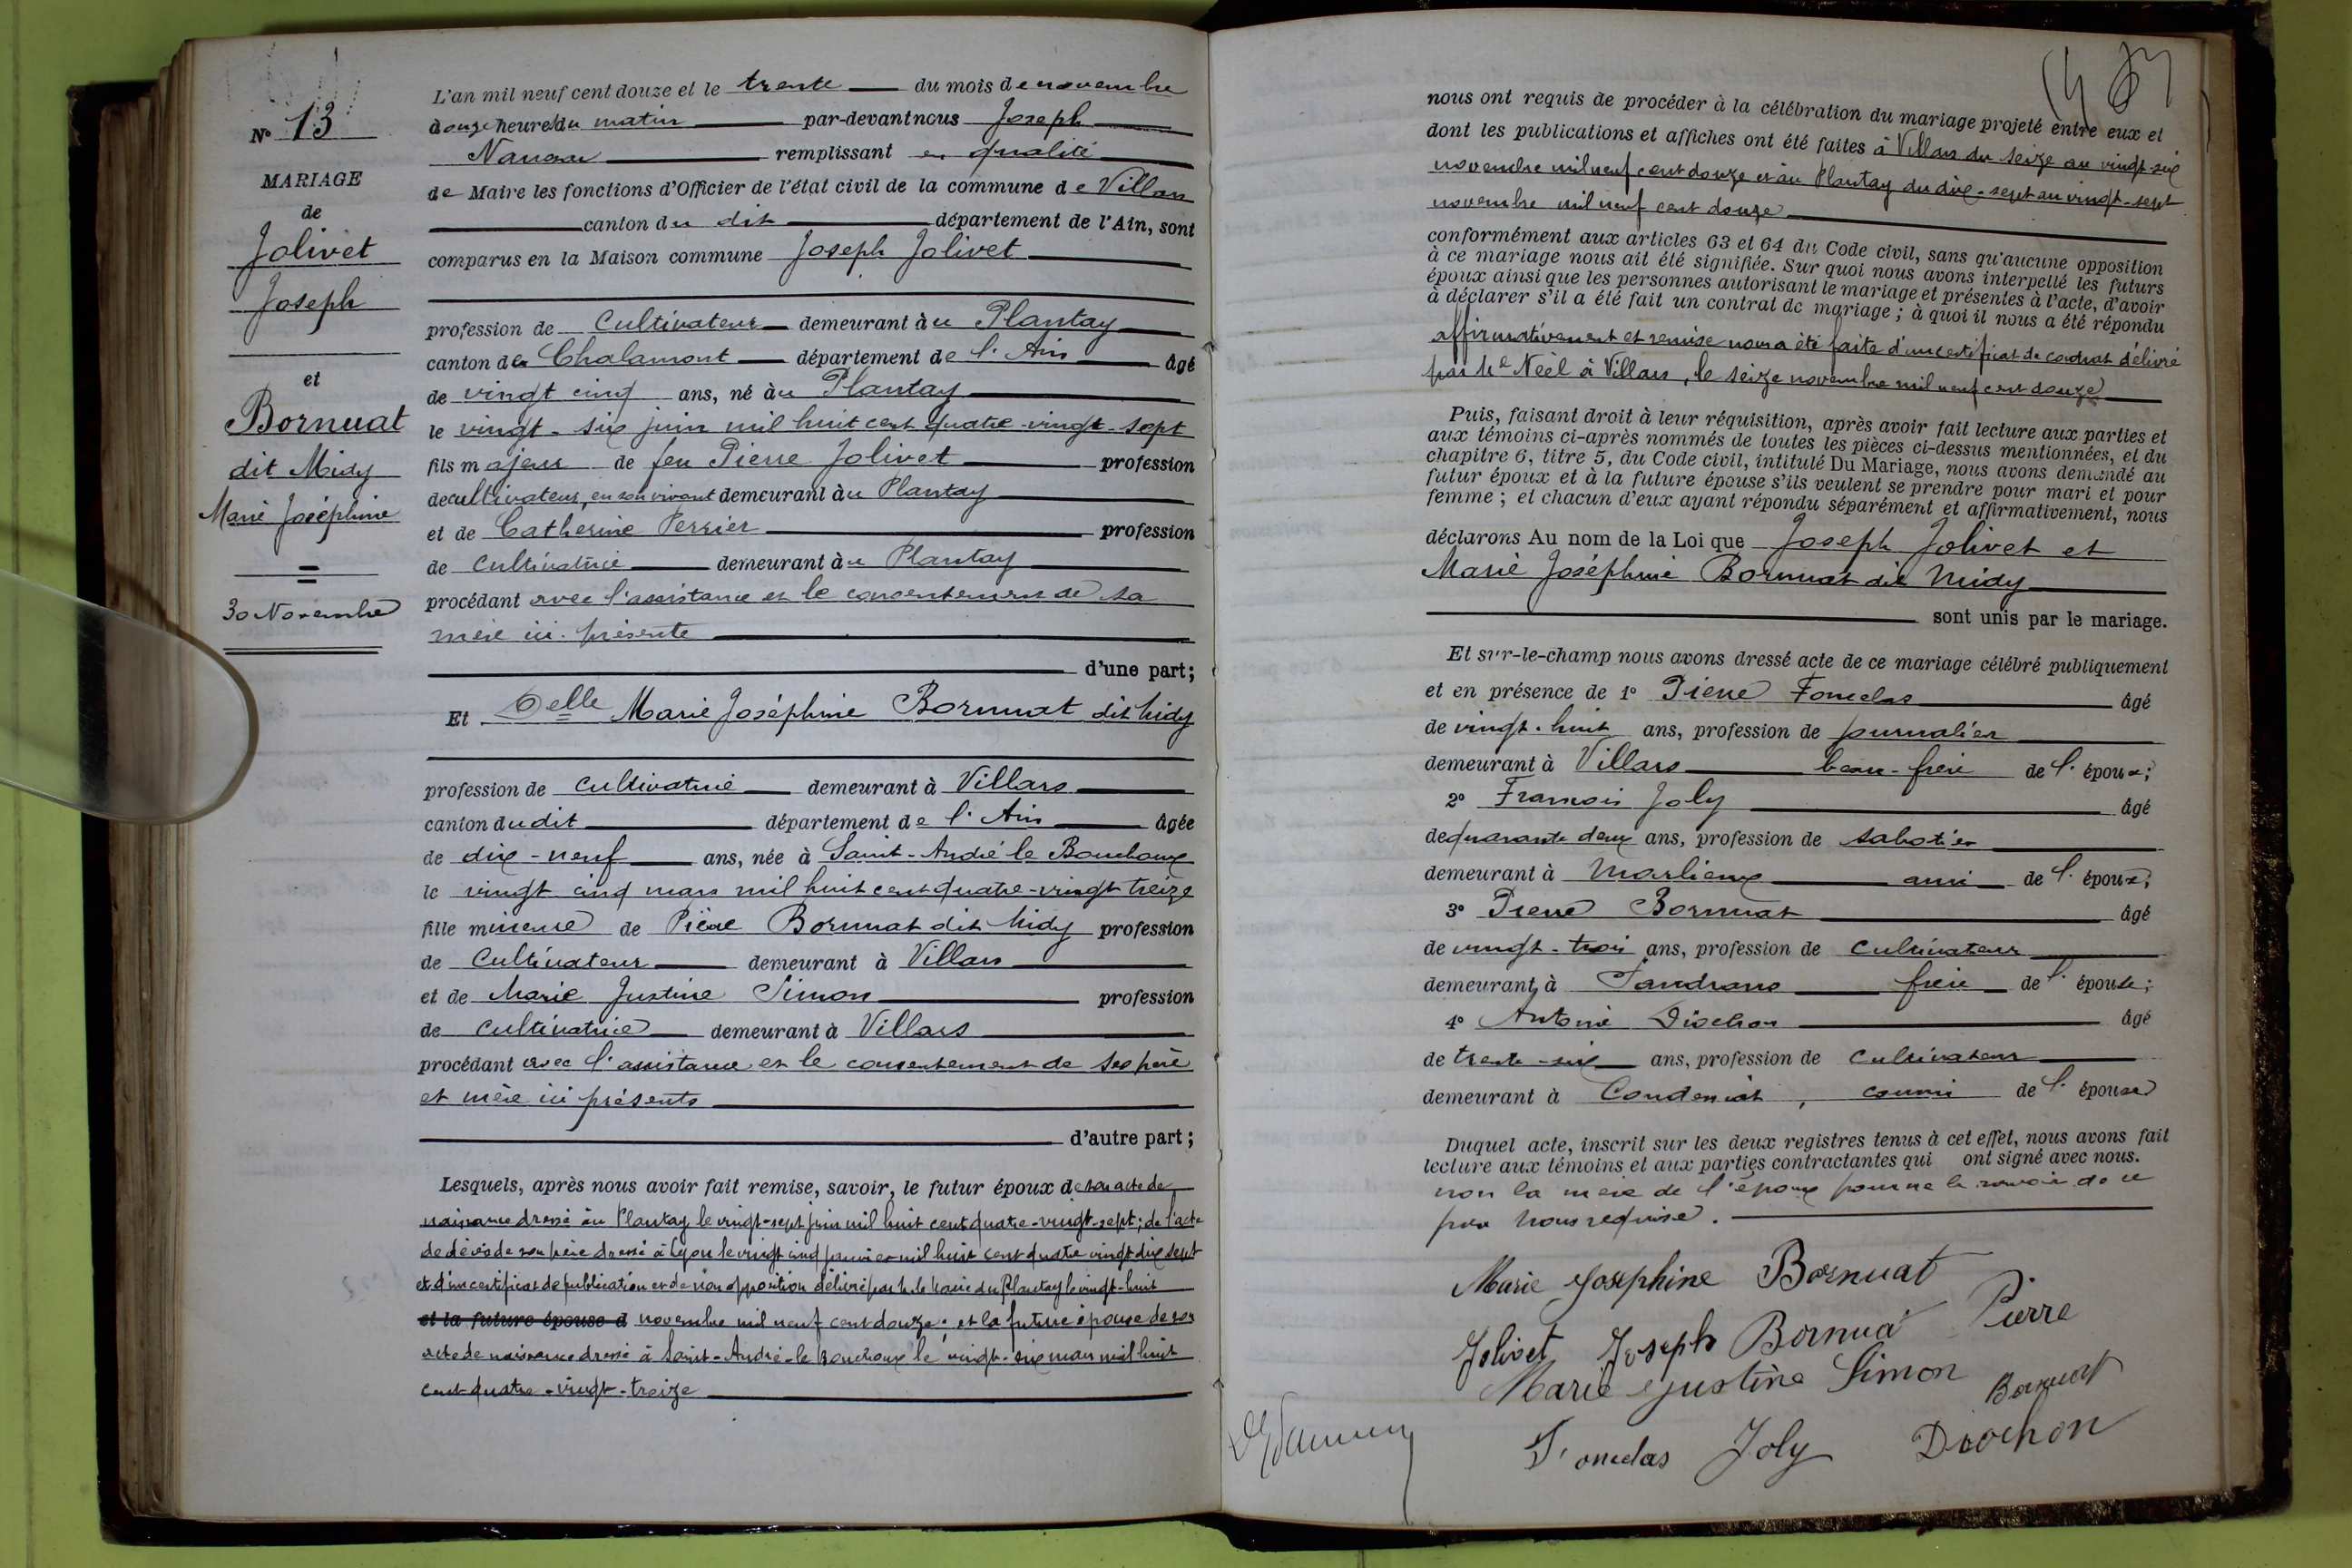 N° 13
MARIAGE
de
Jolivet
Joseph
et
Bornuat
dit Midy
Marie Joséphine
30 Novembre
L'an mil neuf cent douze et le trente du mois de novembre
à onze heures du matin par-devant nous Joseph
remplissant en qualité
de Maire les fonctions d'Officier de l'état civil de la commune de Villars
canton du dit département de l'Ain, sont
comparus en la Maison commune Joseph Jolivet
profession de Cultivateur demeurant à u Plantay
canton de Chalamont département de l'Ain âgé
de vingt cinq ans, né à u Plantay
le vingt-six juin mil huit cent quatre-vingt-sept
fils majeur de feu Pierre Jolivet profession
de cultivateur, en son vivant demeurant à u Plantay
et de Catherine Perrier profession
de cultivatrice demeurant à u Plantay
procédant avec l'assistance et le consentement de sa
mère ici présente
d'une part;
Et Delle Marie Joséphine Bornuat dit Midy
profession de cultivatrice demeurant à Villars
canton du dit département de l'Ain âgée
de dix-neuf ans, née à Saint-André le Bouchoux
le vingt cinq mars mil huit cent quatre-vingt treize
fille mineure de Pierre Bornuat dit Midy profession
de Cultivateur demeurant à Villars
et de Marie Justine Simon profession
de cultivatrice demeurant à Villars
procédant avec l'assistance et le consentement de ses père
et mère ici présents
d'autre part;
Lesquels, après nous avoir fait remise, savoir, le futur époux de son acte de
naissance dressé au Plantay le vingt-sept juin mil huit cent quatre-vingt-sept; de l'acte
de décès de son père dressé à Lyon le vingt cinq janvier mil huit cent quatre vingt dix sept
et d'un certificat de publication et de non opposition délivré par M. le Maire du Plantay le vingt-huit
et la future épouse d novembre mil neuf cent douze; et la future épouse de son
acte de naissance dressé à Saint-André-le Bouchoux le vingt-six mars mil huit
cent quatre-vingt-treize
nous ont requis de procéder à la célébration du mariage projeté entre eux et
dont les publications et affiches ont été faites à Villars du seize au vingt-six
novembre mil neuf cent douze et au Plantay du dix-sept au vingt-sept
novembre mil neuf cent douze
conformément aux articles 63 et 64 du Code civil, sans qu'aucune opposition
à ce mariage nous ait été signifiée. Sur quoi nous avons interpellé les futurs
époux ainsi que les personnes autorisant le mariage et présentes à l'acte, d'avoir
à déclarer s'il a été fait un contrat de mariage; à quoi il nous a été répondu
affirmativement et remise nous a été faite d'un certificat de contrat délivré
par Me Néel à Villars, le seize novembre mil neuf cent douze
Puis, faisant droit à leur réquisition, après avoir fait lecture aux parties et
aux témoins ci-après nommés de toutes les pièces ci-dessus mentionnées, et du
chapitre 6, titre 5, du Code civil, intitulé Du Mariage, nous avons demandé au
futur époux et à la future épouse s'ils veulent se prendre pour mari et pour
femme; et chacun d'eux ayant répondu séparément et affirmativement, nous
déclarons Au nom de la Loi que Joseph Jolivet et
Marie Joséphine Bornuat dit Midy
sont unis par le mariage.
Et sur-le-champ nous avons dressé acte de ce mariage célébré publiquement
et en présence de 1° Pierre Fonclas âgé
de vingt-huit ans, profession de journalier
demeurant à Villars beau-frère de l'époux;
2° François Joly âgé
de quarante deux ans, profession de sabotier
demeurant à Marlieux ami de l'époux;
3° Pierre Bornuat âgé
de vingt-trois ans, profession de cultivateur
demeurant à Sandrans frère de l'épouse;
4° Antoine Diochon âgé
de trente-six ans, profession de cultivateur
demeurant à Condeissiat, cousin de l'épouse
Duquel acte, inscrit sur les deux registres tenus à cet effet, nous avons fait
lecture aux témoins et aux parties contractantes qui ont signé avec nous.
non la mère de l'époux pour ne le savoir de ce
par nous requise.
Marie Josephine Bornuat
Jolivet Joseph Bornua Pierre
Marie Justine Simon Bornuat
Fonclas Joly Diochon